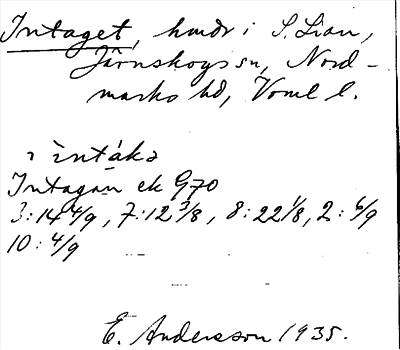 Intaget, hmdr i S. Lian,
Järnskogs sn, Nord-
marks hd, Vrml l.
ı ìntákə
Intagan ek G70
3:14 4/9, 7:12 3/8, 8:22 1/8, 2: 6/9
10: 4/9
E. Andersson 1935.